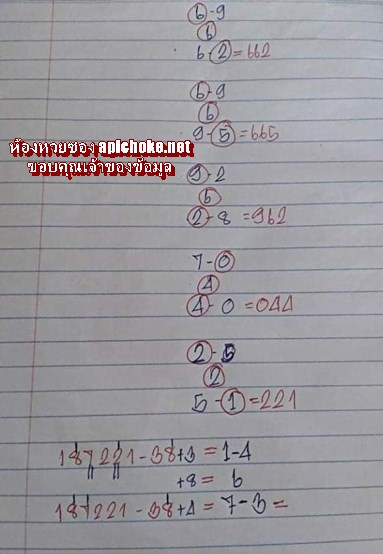 6-9
6
6-2=662
6-9
6
9-5=665
ห้องหวยซอง apichoke.net
ขอบคุณเจ้าของข้อมูล
9-2
6
2-8=962
7-0
4
4-0=044
2-5
2
5-1=221
187221-38+3=1-4
+8=6
187221-38+4=7-3=